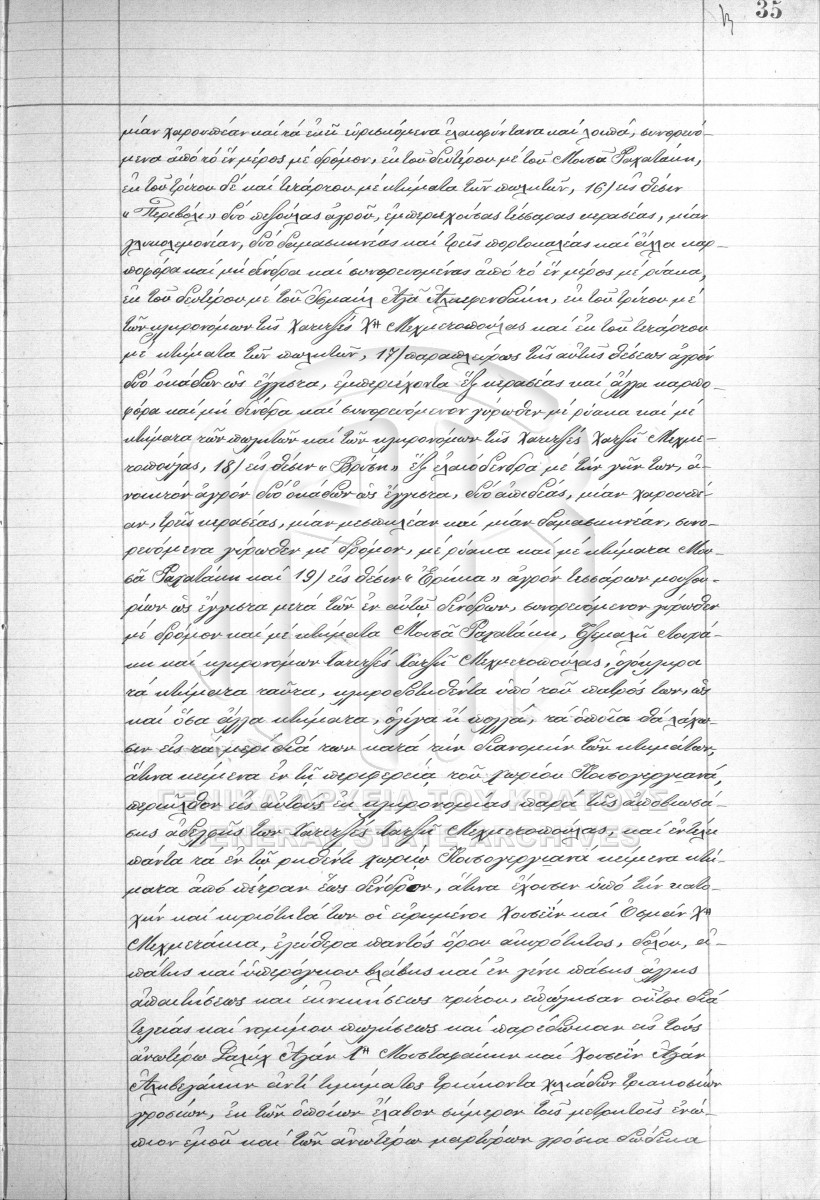 35
μίαν χαρουπέαν καί τά ἐκεῖ εὑρισκόμενα ἐλαιοφύντανα καί λοιπά, συνορευό-
μενα ἀπό τό ἕν μέρος μέ δρόμον, ἐκ τοῦ δευτέρου μέ τοῦ Μουσᾶ Ραχατάκη,
ἐκ τοῦ τρίτου δέ καί τετάρτου μέ κτήματα τῶν πωλητῶν, 16) εἰς θέσιν
"Περιβόλι" δύο πεζούλας ἀγροῦ, ἐμπεριεχούσας τέσσαρας κερασέας, μίαν
γλυκολεμονέαν, δύο δαμασκηνέας καί τρεῖς πορτοκαλέας καί ἄλλα καρ-
ποφόρα καί μή δένδρα καί συνορευομένας ἀπό τό ἕν μέρος μέ ρύακα,
ἐκ τοῦ δευτέρου μέ τοῦ Ἰσμαήλ Ἀγᾶ Ἀλιεφενδάκη, ἐκ τοῦ τρίτου μέ
τῶν κληρονόμων τῆς Χατιτζές Χʺ Μεχμετοπούλας καί ἐκ τοῦ τετάρτου
μέ κτήματα τῶν πωλητῶν, 17) παραπλεύρως τῆς αὐτῆς θέσεως ἀγρόν
δύο ὀκάδων ὡς ἔγγιστα, ἐμπεριέχοντα ἕξ κερασέας καί ἄλλα καρπο-
φόρα καί μή δένδρα καί συνορευόμενον γύρωθεν μέ ρύακα καί μέ
κτήματα τῶν πωλητῶν καί τῶν κληρονόμων τῆς Χατιτζές Χατζῆ Μεχμε-
τοπούλας, 18) εἰς θέσιν "Βρύση" ἕξ ἐλαιόδενδρα μέ τήν γῆν των, ἀ-
νοικτόν ἀγρόν δύο ὀκάδων ὡς ἔγγιστα, δύο ἀπιδέας, μίαν χαρουπέ-
αν, τρεῖς κερασέας, μίαν μεσπιλέαν καί μίαν δαμασκηνέαν, συνο-
ρευόμενα γύρωθεν μέ δρόμον, μέ ρύακα καί μέ κτήματα Μου-
σᾶ Ραχατάκη καί 19) εἰς θέσιν "Ἐρίκια" ἀγρόν τεσσάρων μουζου-
ρίων ὡς ἔγγιστα μετά τῶν ἐν αὐτῷ δένδρων, συνορευόμενον γύρωθεν
μέ δρόμον καί μέ κτήματα Μουσᾶ Ραχατάκη,
κη καί κληρονόμων Χατιτζές Χατζῆ Μεχμετοπούλας, ὁλόκληρα
τά κτήματα ταῦτα, κληροδοτηθέντα ὑπό τοῦ πατρός των, ὡς
καί ὅσα ἄλλα κτήματα, ὀλίγα ἤ πολλά, τά ὁποῖα θά λάχω-
σιν εἰς τά μερίδιά των κατά τήν διανομήν τῶν κτημάτων,
ἅτινα κείμενα ἐν τῇ περιφερείᾳ τοῦ χωρίου Πισωγεργιανά,
περιῆλθον εἰς αὐτούς ἐκ κληρονομίας παρά τῆς ἀποβιωσά-
σης ἀδελφῆς των Χατιτζές Χατζῆ Μεχμετοπούλας, καί ἐν τέλει
πάντα τά ἐν τῷ ρηθέντι χωρίῳ κείμενα κτή-
ματα ἀπό πέτραν ἕως δένδρον, ἅτινα ἔχουσιν ὑπό τήν κατο-
χήν καί κυριότητά των οἱ εἰρημένοι Χουσεΐν καί Ὀσμάν Χʺ
Μεχμετάκια, ἐλεύθερα παντός ὅρου ἀκυρότητος, δόλου, ἀ-
πάτης καί ὑπερόγκου βλάβης καί ἐν γένει πάσης ἄλλης
ἀπαιτήσεως καί ἐκνικήσεως τρίτου, ἐπώλησαν οὗτοι διά
τελείας καί νομίμου πωλήσεως καί παρέδωκαν εἰς τούς
ἀνωτέρω Σαλήχ Ἀγάν Χʺ Μουσταφάκην καί Χουσεΐν Ἀγάν
Ἀλιβεγάκην ἀντί τιμήματος τριάκοντα χιλιάδων τριακοσίων
γροσίων, ἐκ τῶν ὁποίων ἔλαβον σήμερον τοῖς μετρητοῖς ἐνώ-
πιον ἐμοῦ καί τῶν ἀνωτέρω μαρτύρων γρόσια δώδεκα
ΓΕΝΙΚΑ ΑΡΧΕΙΑ ΤΟΥ ΚΡΑΤΟΥΣ
GENERAL STATE ARCHIVES